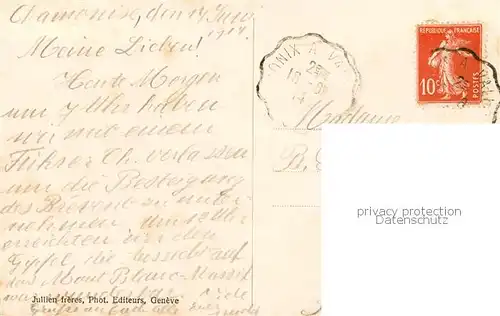 Chamonix, den 14 Juni
1914.
Meine Lieben!
Heute Morgen
um 7 Uhr haben
wir mit einem
Führer Ch. verlassen
um die Besteigung
des Brevent zu unter-
nehmen. Um Uhr
erreichten wir den
Gipfel, die Aussicht auf
das Mont Blanc-Massif
war wunderbar.
Grüße an Euch alle
Jullien frères, Phot. Editeurs, Genève
ONIX A VA
REPUBLIQUE FRANÇAISE
10c
POSTES
Madame
B.
privacy protection
watermark